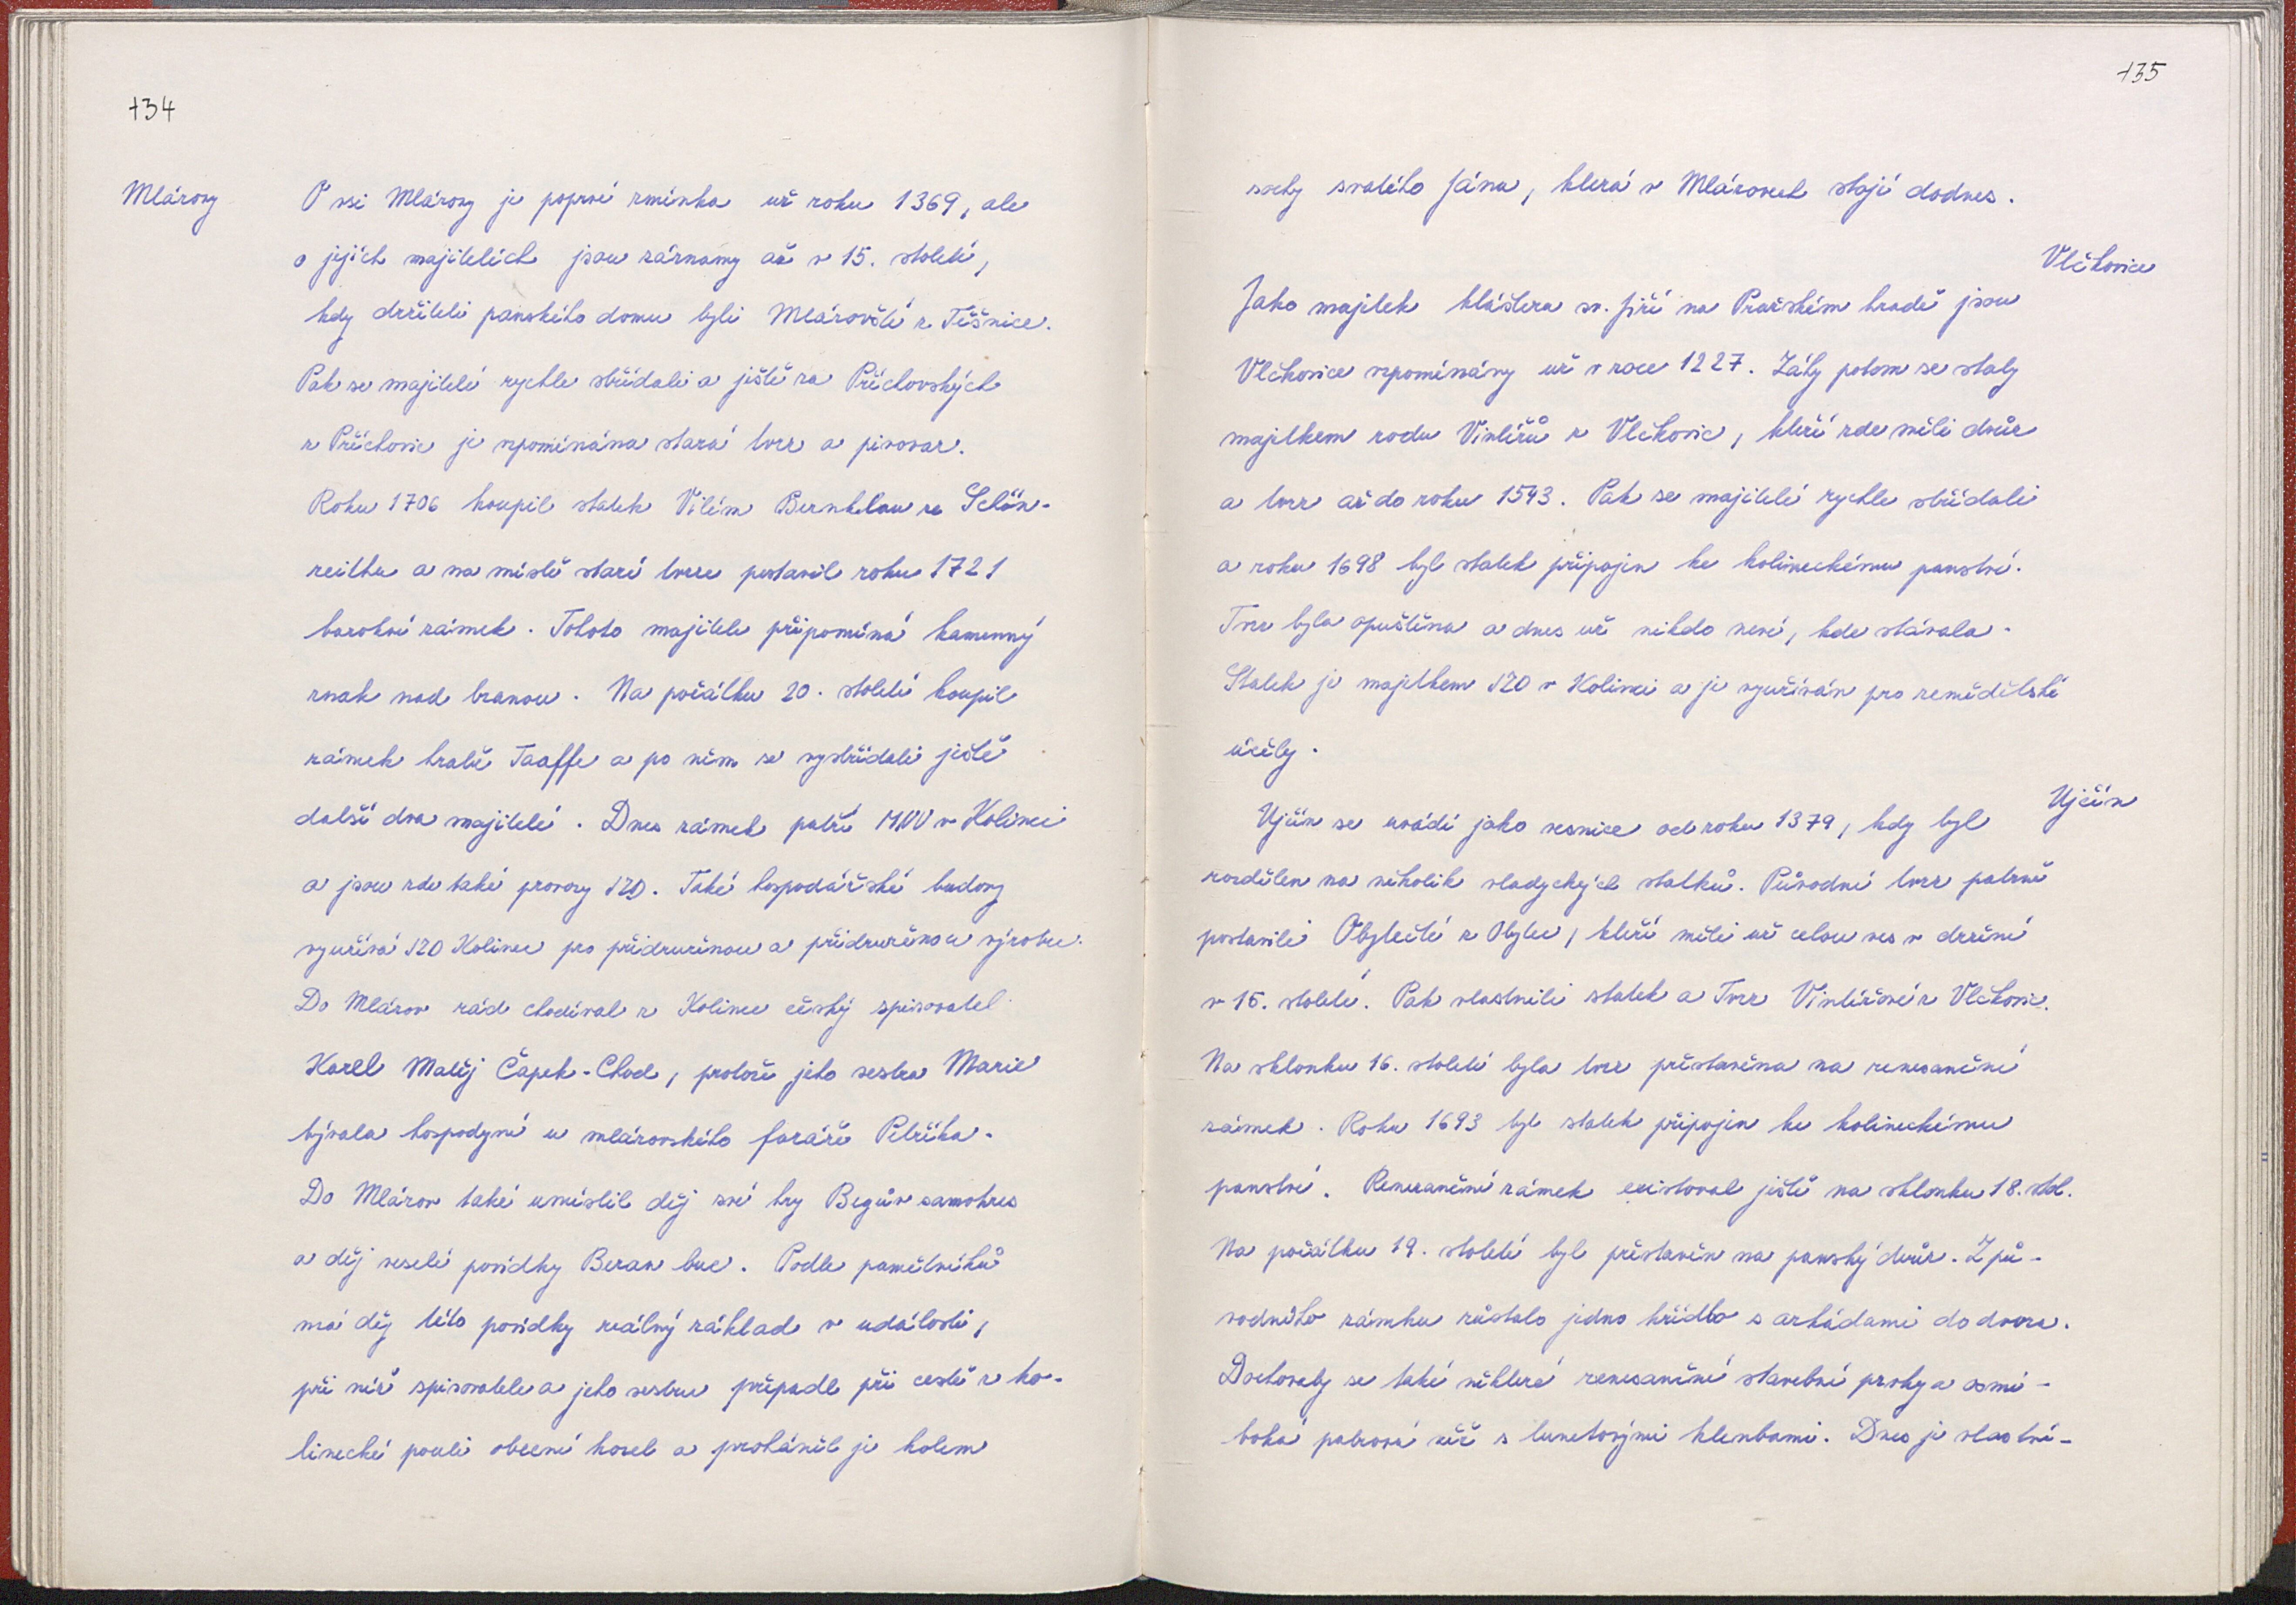 134
Mlázovy
O vsi Mlázovy je poprvé zmínka už roku 1369, ale
o jejích majitelích jsou záznamy až v 15. století,
kdy držiteli panského domu byli Mlázovští z Těšnice.
Pak se majitelé rychle střídali a ještě za Příchovských
z Příchovic je vzpomínána stará tvrz a pivovar.
Roku 1706 koupil statek Vilém Bernklau ze Schön-
reithu a na místě staré tvrze postavil roku 1721
barokní zámek. Tohoto majitele připomíná kamenný
znak nad branou. Na počátku 20. století koupil
zámek hrabě Taaffe a po něm se vystřídali ještě
další dva majitelé. Dnes zámek patří MNV v Kolinci
a jsou zde také provozy JZD. Také hospodářské budovy
využívá JZD Kolinec pro přidruženou a přidruženou výrobu.
Do Mlázov rád chodíval z Kolince český spisovatel
Karel Matěj Čapek-Chod, protože jeho sestra Marie
bývala hospodyní u mlázovského faráře Petříka.
Do Mlázov také umístil děj své hry Begův samokres
a děj veselé povídky Beran buc. Podle pamětníků
má děj této povídky reálný základ v události,
při níž spisovatele a jeho sestru přepadl při cestě z ko-
linecké pouti obecní kozel a proháněl je kolem
135
sochy svatého Jána, která v Mlázovech stojí dodnes.
Vlčkovice
Jako majetek kláštera sv. Jiří na Pražském hradě jsou
Vlčkovice vzpomínány už v roce 1227. Záhy potom se staly
majetkem rodu Vintířů z Vlčkovic, kteří zde měli dvůr
a tvrz až do roku 1543. Pak se majitelé rychle střídali
a roku 1698 byl statek připojen ke kolineckému panství.
Tvrz byla opuštěna a dnes už nikdo neví, kde stávala.
Statek je majetkem JZD v Kolinci a je využíván pro zemědělské
účely.
Ujčín
Ujčín se uvádí jako vesnice od roku 1379, kdy byl
rozdělen na několik vladyckých statků. Původní tvrz patrně
postavili Obytečtí z Obytec, kteří měli už celou ves v držení
v 15. století. Pak vlastnili statek a Tvrz Vintířové z Vlčkovic.
Na sklonku 16. století byla tvrz přestavěna na renesanční
zámek. Roku 1693 byl statek připojen ke kolineckému
panství. Renesanční zámek existoval ještě na sklonku 18. stol.
Na počátku 19. století byl přestavěn na panský dvůr. Z pů-
vodního zámku zůstalo jedno křídlo s arkádami do dvora.
Dochovaly se také některé renesanční stavební prvky a osmi-
boká patrová věž s lunetovými klenbami. Dnes je vlastní-